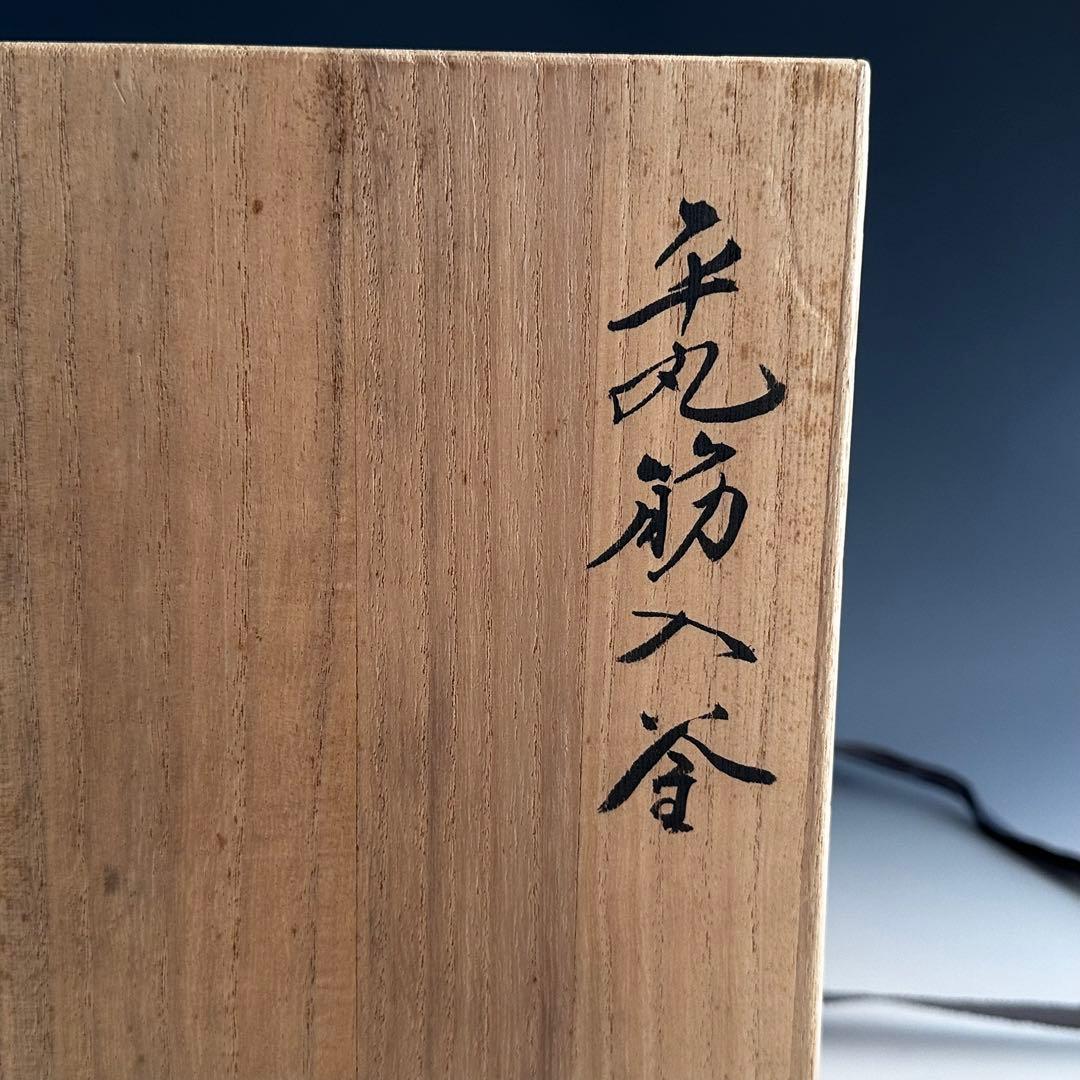 平丸筋入釜